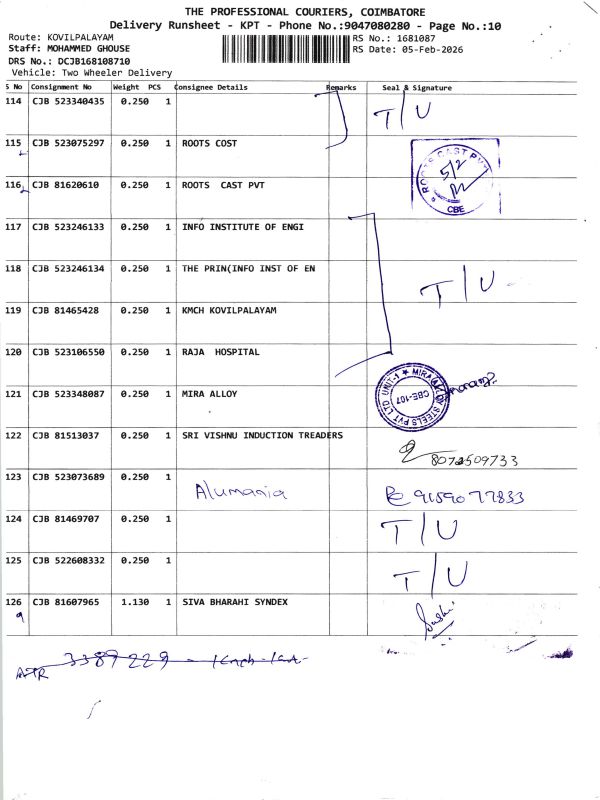 THE PROFESSIONAL COURIERS, COIMBATORE
Delivery Runsheet - KPT - Phone No.:9047080280 - Page No.:10
Route: KOVILPALAYAM
RS No.: 1681087
Staff: MOHAMMED GHOUSE
RS Date: 05-Feb-2026
DRS No.: DCJB168108710
Vehicle: Two Wheeler Delivery
S No Consignment No Weight PCS Consignee Details Remarks Seal & Signature
114 CJB 523340435 0.250 1 T/U
115 CJB 523075297 0.250 1 ROOTS COST
116 CJB 81620610 0.250 1 ROOTS CAST PVT
ROOTS CAST PVT
5/2
CBE
117 CJB 523246133 0.250 1 INFO INSTITUTE OF ENGI
118 CJB 523246134 0.250 1 THE PRIN(INFO INST OF EN T/U
119 CJB 81465428 0.250 1 KMCH KOVILPALAYAM
120 CJB 523106550 0.250 1 RAJA HOSPITAL
121 CJB 523348087 0.250 1 MIRA ALLOY
MIRA ALLOY STEELS PVT LTD UNIT-1
CBE-107
122 CJB 81513037 0.250 1 SRI VISHNU INDUCTION TREADERS
8072509733
123 CJB 523073689 0.250 1
Alumania 9159077833
124 CJB 81469707 0.250 1 T/U
125 CJB 522608332 0.250 1 T/U
126 CJB 81607965 1.130 1 SIVA BHARAHI SYNDEX
9
3389229